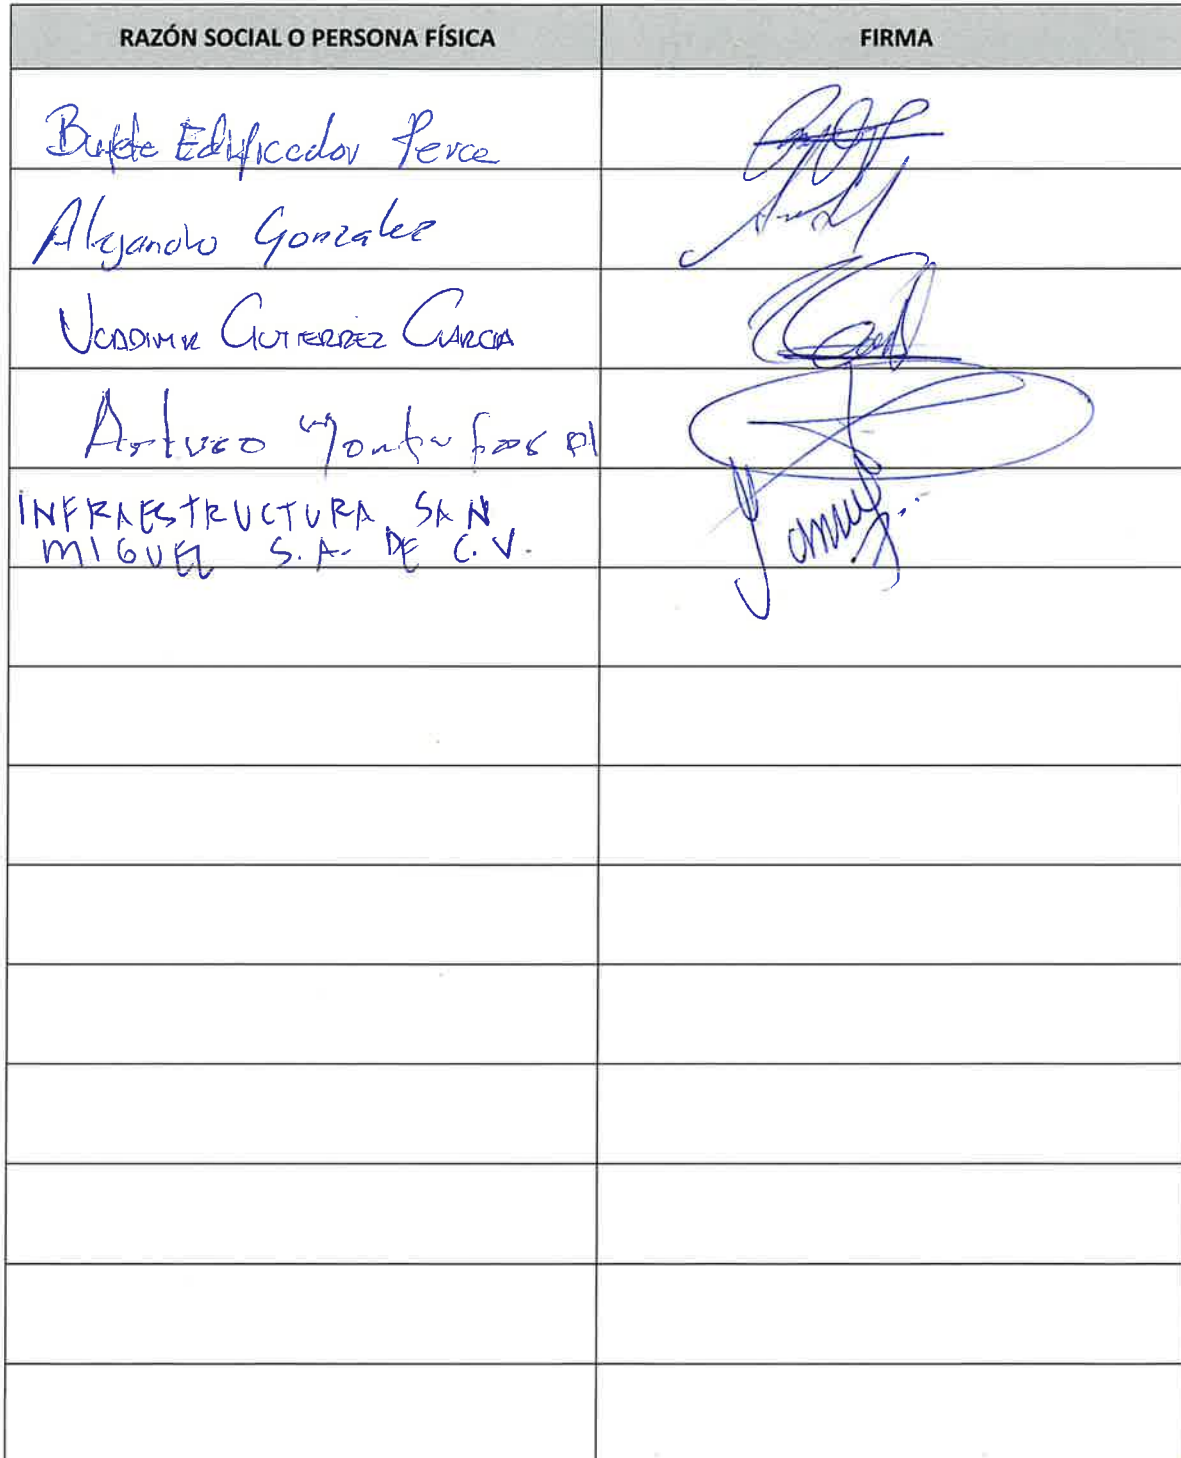 RAZÓN SOCIAL O PERSONA FÍSICA
FIRMA
Bufete Edificador Perce
Alejandro Gonzalez
Vladimir GUTIERREZ GARCIA
Arturo
INFRAESTRUCTURA SAN
MIGUEL S.A. DE C.V.